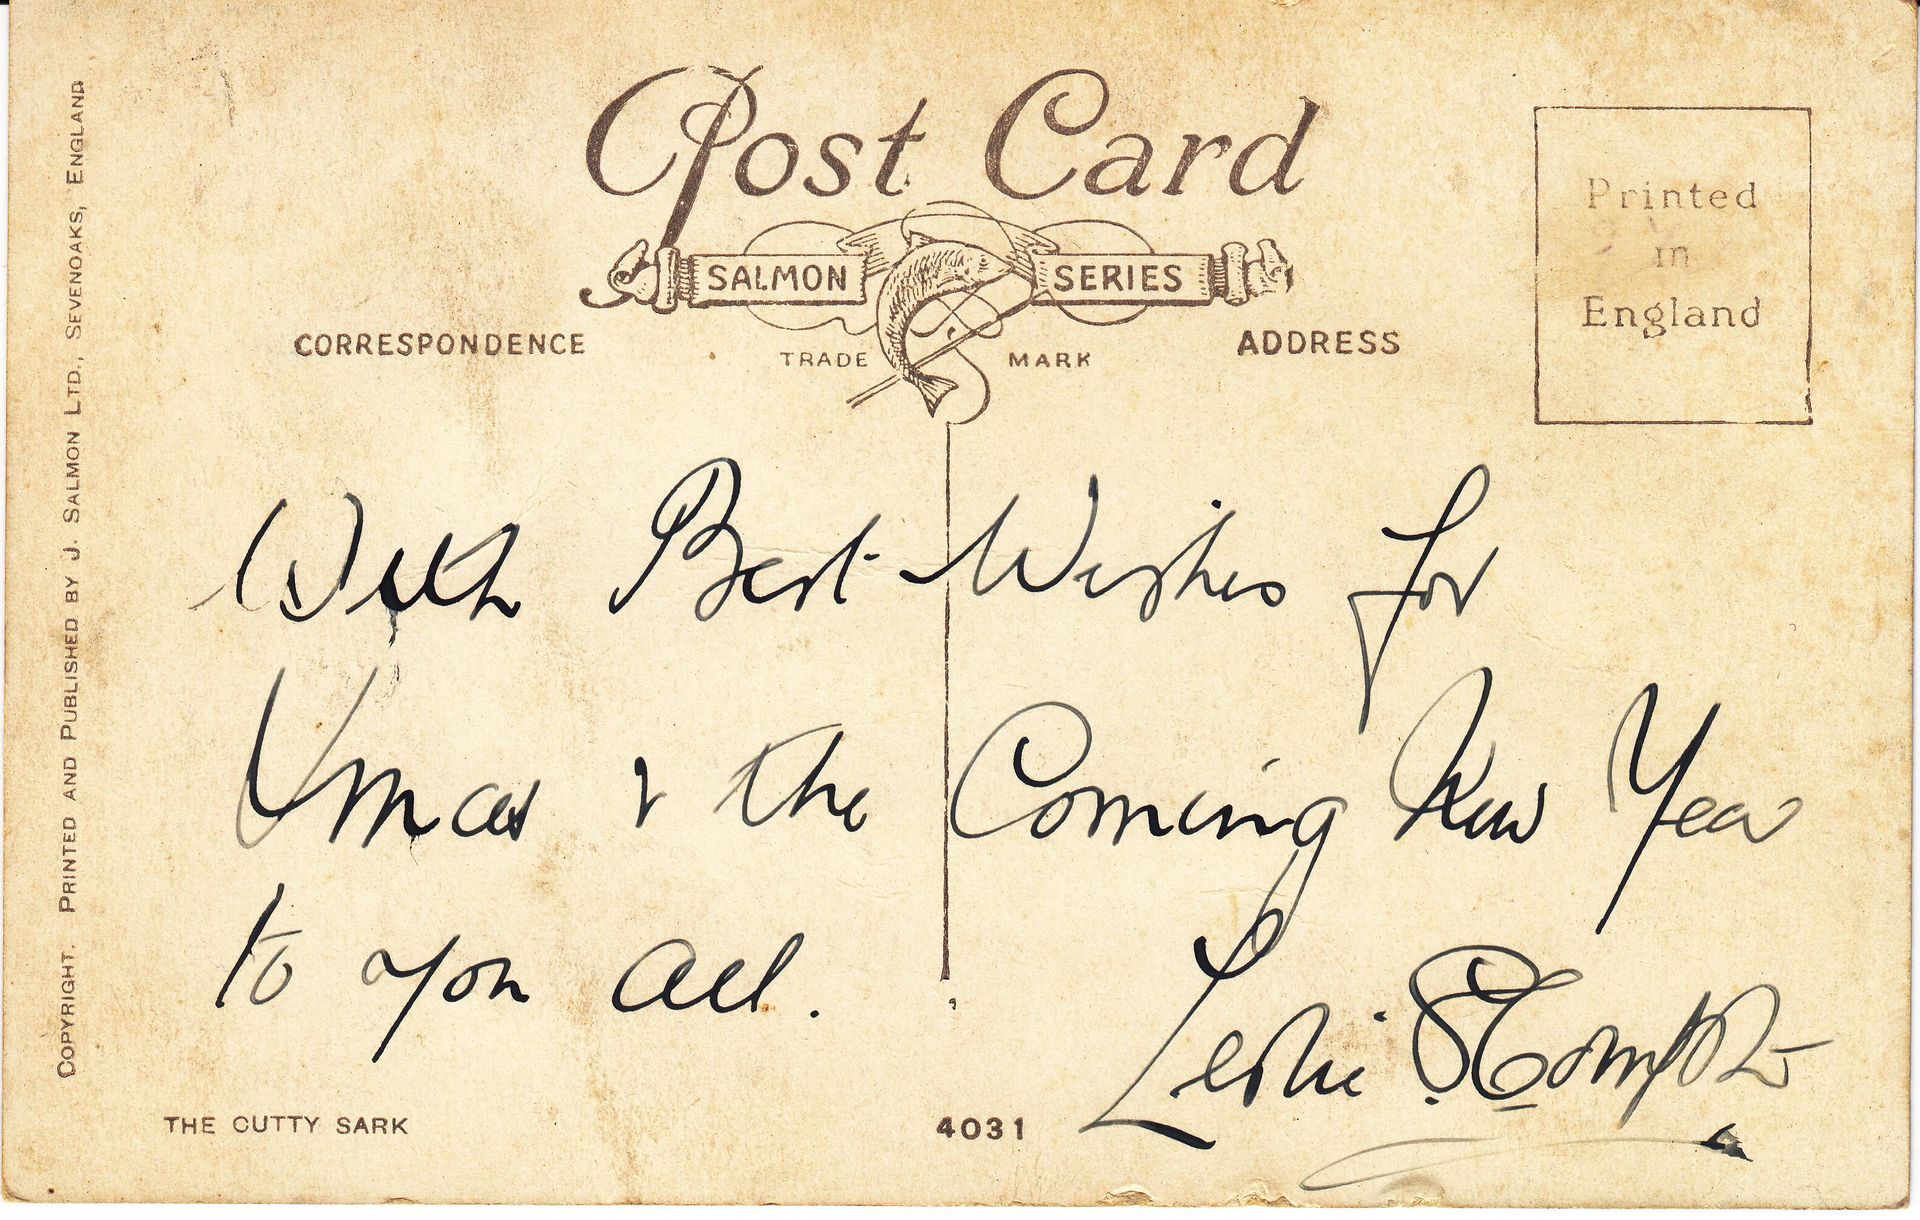 Post Card
SALMON SERIES
CORRESPONDENCE
TRADE MARK
ADDRESS
Printed
in
England
COPYRIGHT. PRINTED AND PUBLISHED BY J. SALMON LTD., SEVENOAKS, ENGLAND
With Best Wishes for
Xmas & the Coming New Year
to you all.
Leslie
THE CUTTY SARK
4031